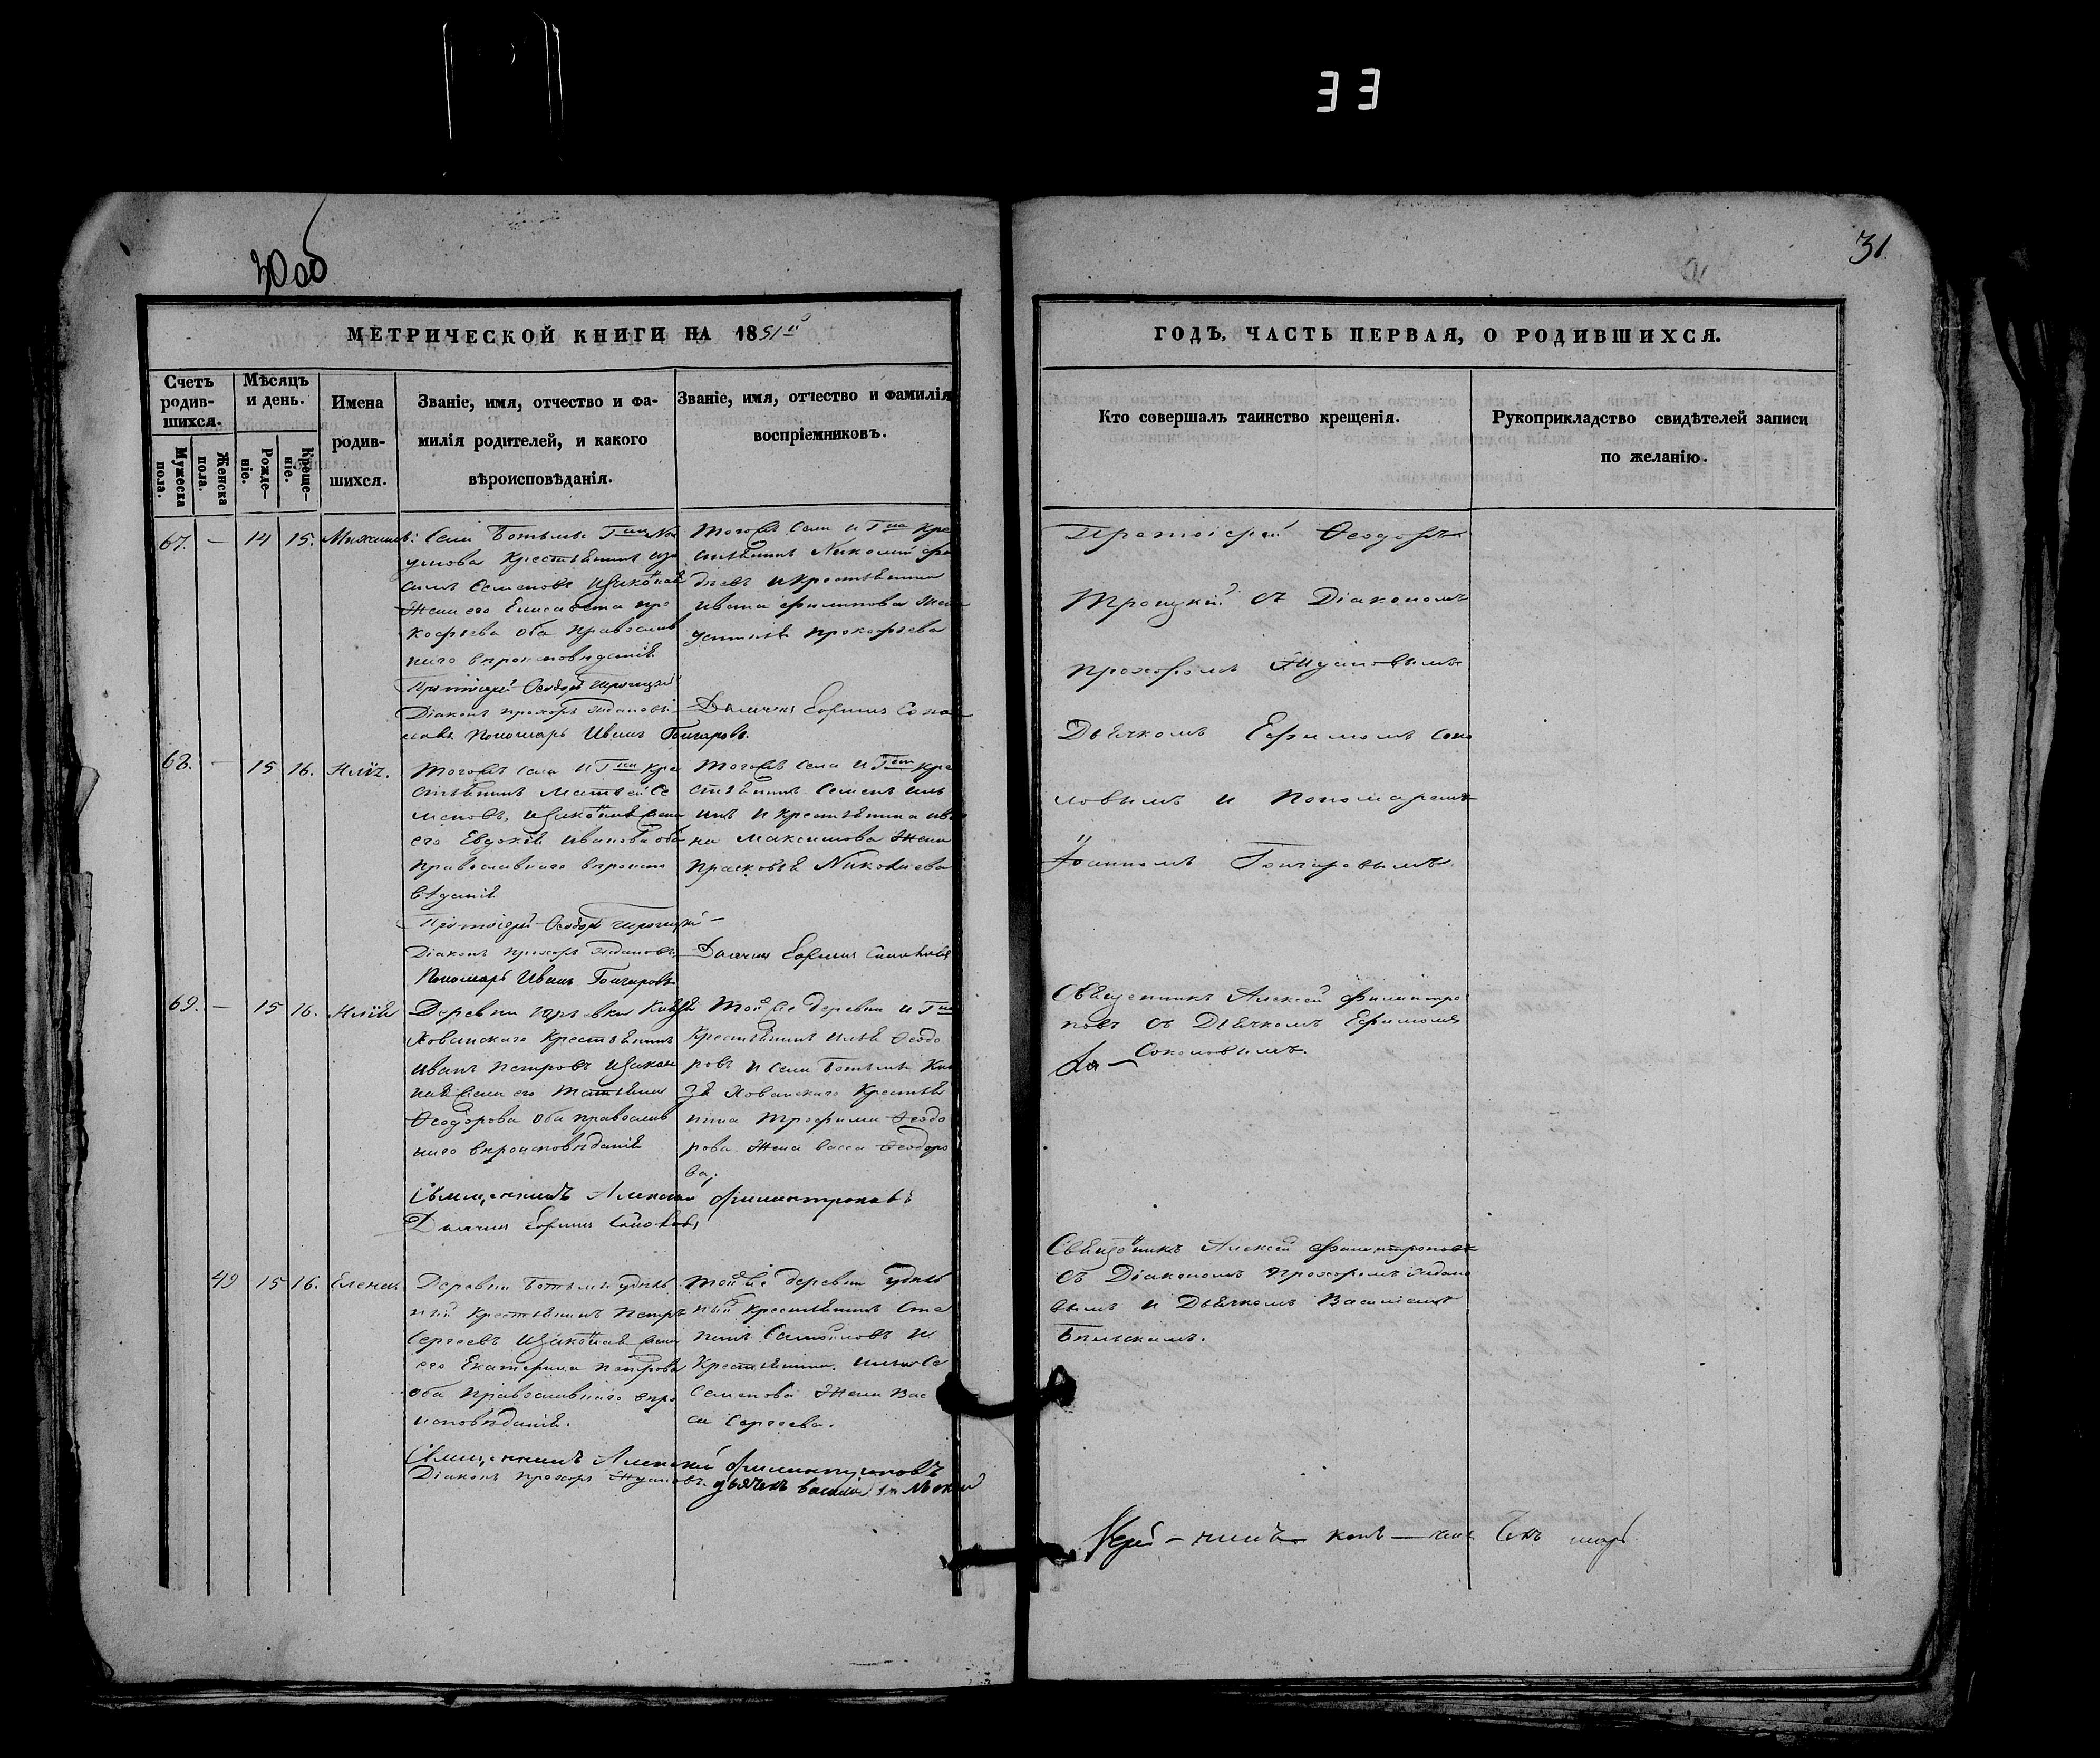 33
30 об
31.
МЕТРИЧЕСКОЙ КНИГИ НА 1851й
ГОДЪ, ЧАСТЬ ПЕРВАЯ, О РОДИВШИХСЯ.
Счетъ родившихся.
Мужеска пола.
Женска пола.
Мѣсяцъ и день.
Рожденіе.
Крещеніе.
Имена родившихся.
Званіе, имя, отчество и фамилія родителей, и какого вѣроисповѣданія.
Званіе, имя, отчество и фамилія воспріемниковъ.
Кто совершалъ таинство крещенія.
Рукоприкладство свидѣтелей записи по желанію.
67. – 14 15.
Села Ботьмы Гна
умова Крестьянинъ
Семеновъ
Жена его Елисавета Про
кофьева оба православ
наго вѣроисповѣданія
Протоіерей Ѳеодоръ Троицкій
Діаконъ Прохоръ Ждановъ
Пономарь Иванъ Гончаровъ.
Тогожъ Села и Гна Кре
стьянинъ Николай
и крестьянина
Ивана Филипова Жена
Устинья Прокофьева
Дьячекъ Ефимъ Соко
Протоіерей Ѳеодоръ
Троицкій съ Діакономъ
Прохоромъ Ждановымъ
Дьячкомъ Ефимомъ Соко
ловымъ и Пономаремъ
Іоанномъ Гончаровымъ.
68. – 15 16. Илія.
Тогожъ Села и Гна Кре
стьянинъ Матвей Се
меновъ, Жена
его Евдокія Иванова оба
православнаго вѣроиспо
вѣданія
Протоіерей Ѳеодоръ Троицкій
Діаконъ Прохоръ Ждановъ
Пономарь Иванъ Гончаровъ
Тогожъ Села и Гна Кре
стьянинъ Семенъ Иль
инъ и крестьянина Ива
на Максимова Жена
Прасковья Николаева
Дьячекъ Ефимъ Соколовъ
69. – 15 16. Илія
Деревни Князя
Хованскаго Крестьянинъ
Иванъ Петровъ
Жена его Татьяна
Ѳеодорова оба православ
наго вѣроисповѣданія
Священникъ Алексей Филантроповъ
Дьячекъ Ефимъ Соколовъ
Той же деревни и Гна
Крестьянинъ Илья Ѳеодо
ровъ и Села Ботьмы Кня
зя Хованскаго Крестьяни
нина Трофима Ѳеодо
рова Жена Васса Ѳеодоро
ва.
Священникъ Алексей Филантро
повъ съ Дьячкомъ Ефимомъ
Соколовымъ.
49 15 16. Елена
Деревни Ботьмы удѣль
ный Крестьянинъ Петръ
Сергеевъ Жена
его Екатерина Петрова
оба православнаго вѣро
исповѣданія.
Священникъ Алексей Филантроповъ
Діаконъ Прохоръ Ждановъ. Дьячекъ Василій
Той же деревни удѣль
ный крестьянинъ Сте
панъ Самойловъ и
Крестьянина
Семенова Жена Вас
са Сергеева.
Священникъ Алексей Филантроповъ
съ Діакономъ Прохоромъ Ждано
вымъ и Дьячкомъ Василіемъ